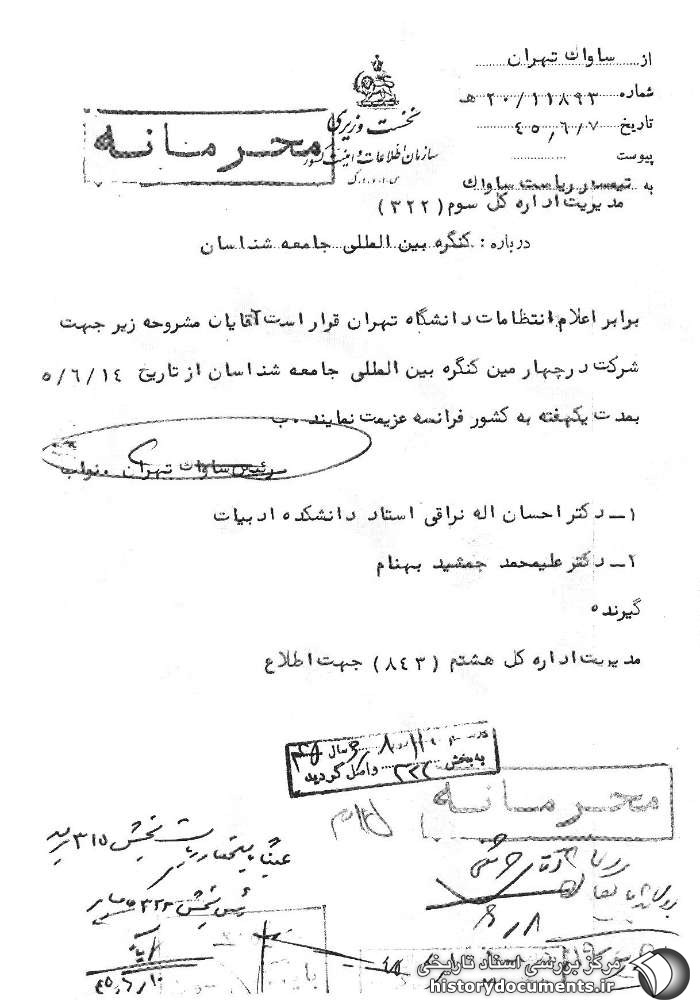 از ساواك تهران
شماره ۲۰/۱۱۸۹۳ هـ
تاریخ ۴۵٫۶/۷
پیوست
نخست وزیری
سازمان اطلاعات و امنیت کشور
س.ا.و.ا.ک
محرمانه
به تیمسار ریاست ساواك
مدیریت اداره کل سوم (۳۲۲)
درباره: کنگره بین المللی جامعه شناسان
برابر اعلام انتظامات دانشگاه تهران قرار است آقایان مشروحه زیر جهت
شرکت در چهارمین کنگره بین المللی جامعه شناسان از تاریخ ۵/۶/۱۴
بمدت یکهفته به کشور فرانسه عزیمت نمایند .ب
رئیس ساواك تهران . نواب
۱ــ دکتر احسان اله نراقی استاد دانشکده ادبیات
۲ــ دکتر علیمحمد جمشید بهنام
گیرنده
مدیریت اداره کل هشتم (۸۴۳) جهت اطلاع
سال
به بخش ۳۲۲ واصل گردید
محرمانه
بخش ۳۱۵
۸ / ۶
۴۵٫۶٫۱۰
مرکز بررسی اسناد تاریخی
historydocuments.ir